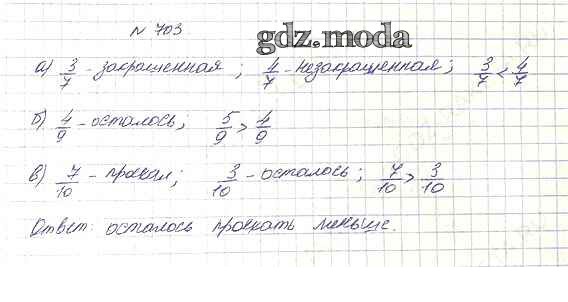 № 703
gdz.moda
а) 3/7 - закрашенная ; 4/7 - незакрашенная ; 3/7 < 4/7
б) 4/9 - осталось ; 5/9 > 4/9
в) 7/10 - проехал ; 3/10 - осталось ; 7/10 > 3/10
Ответ: осталось проехать меньше.